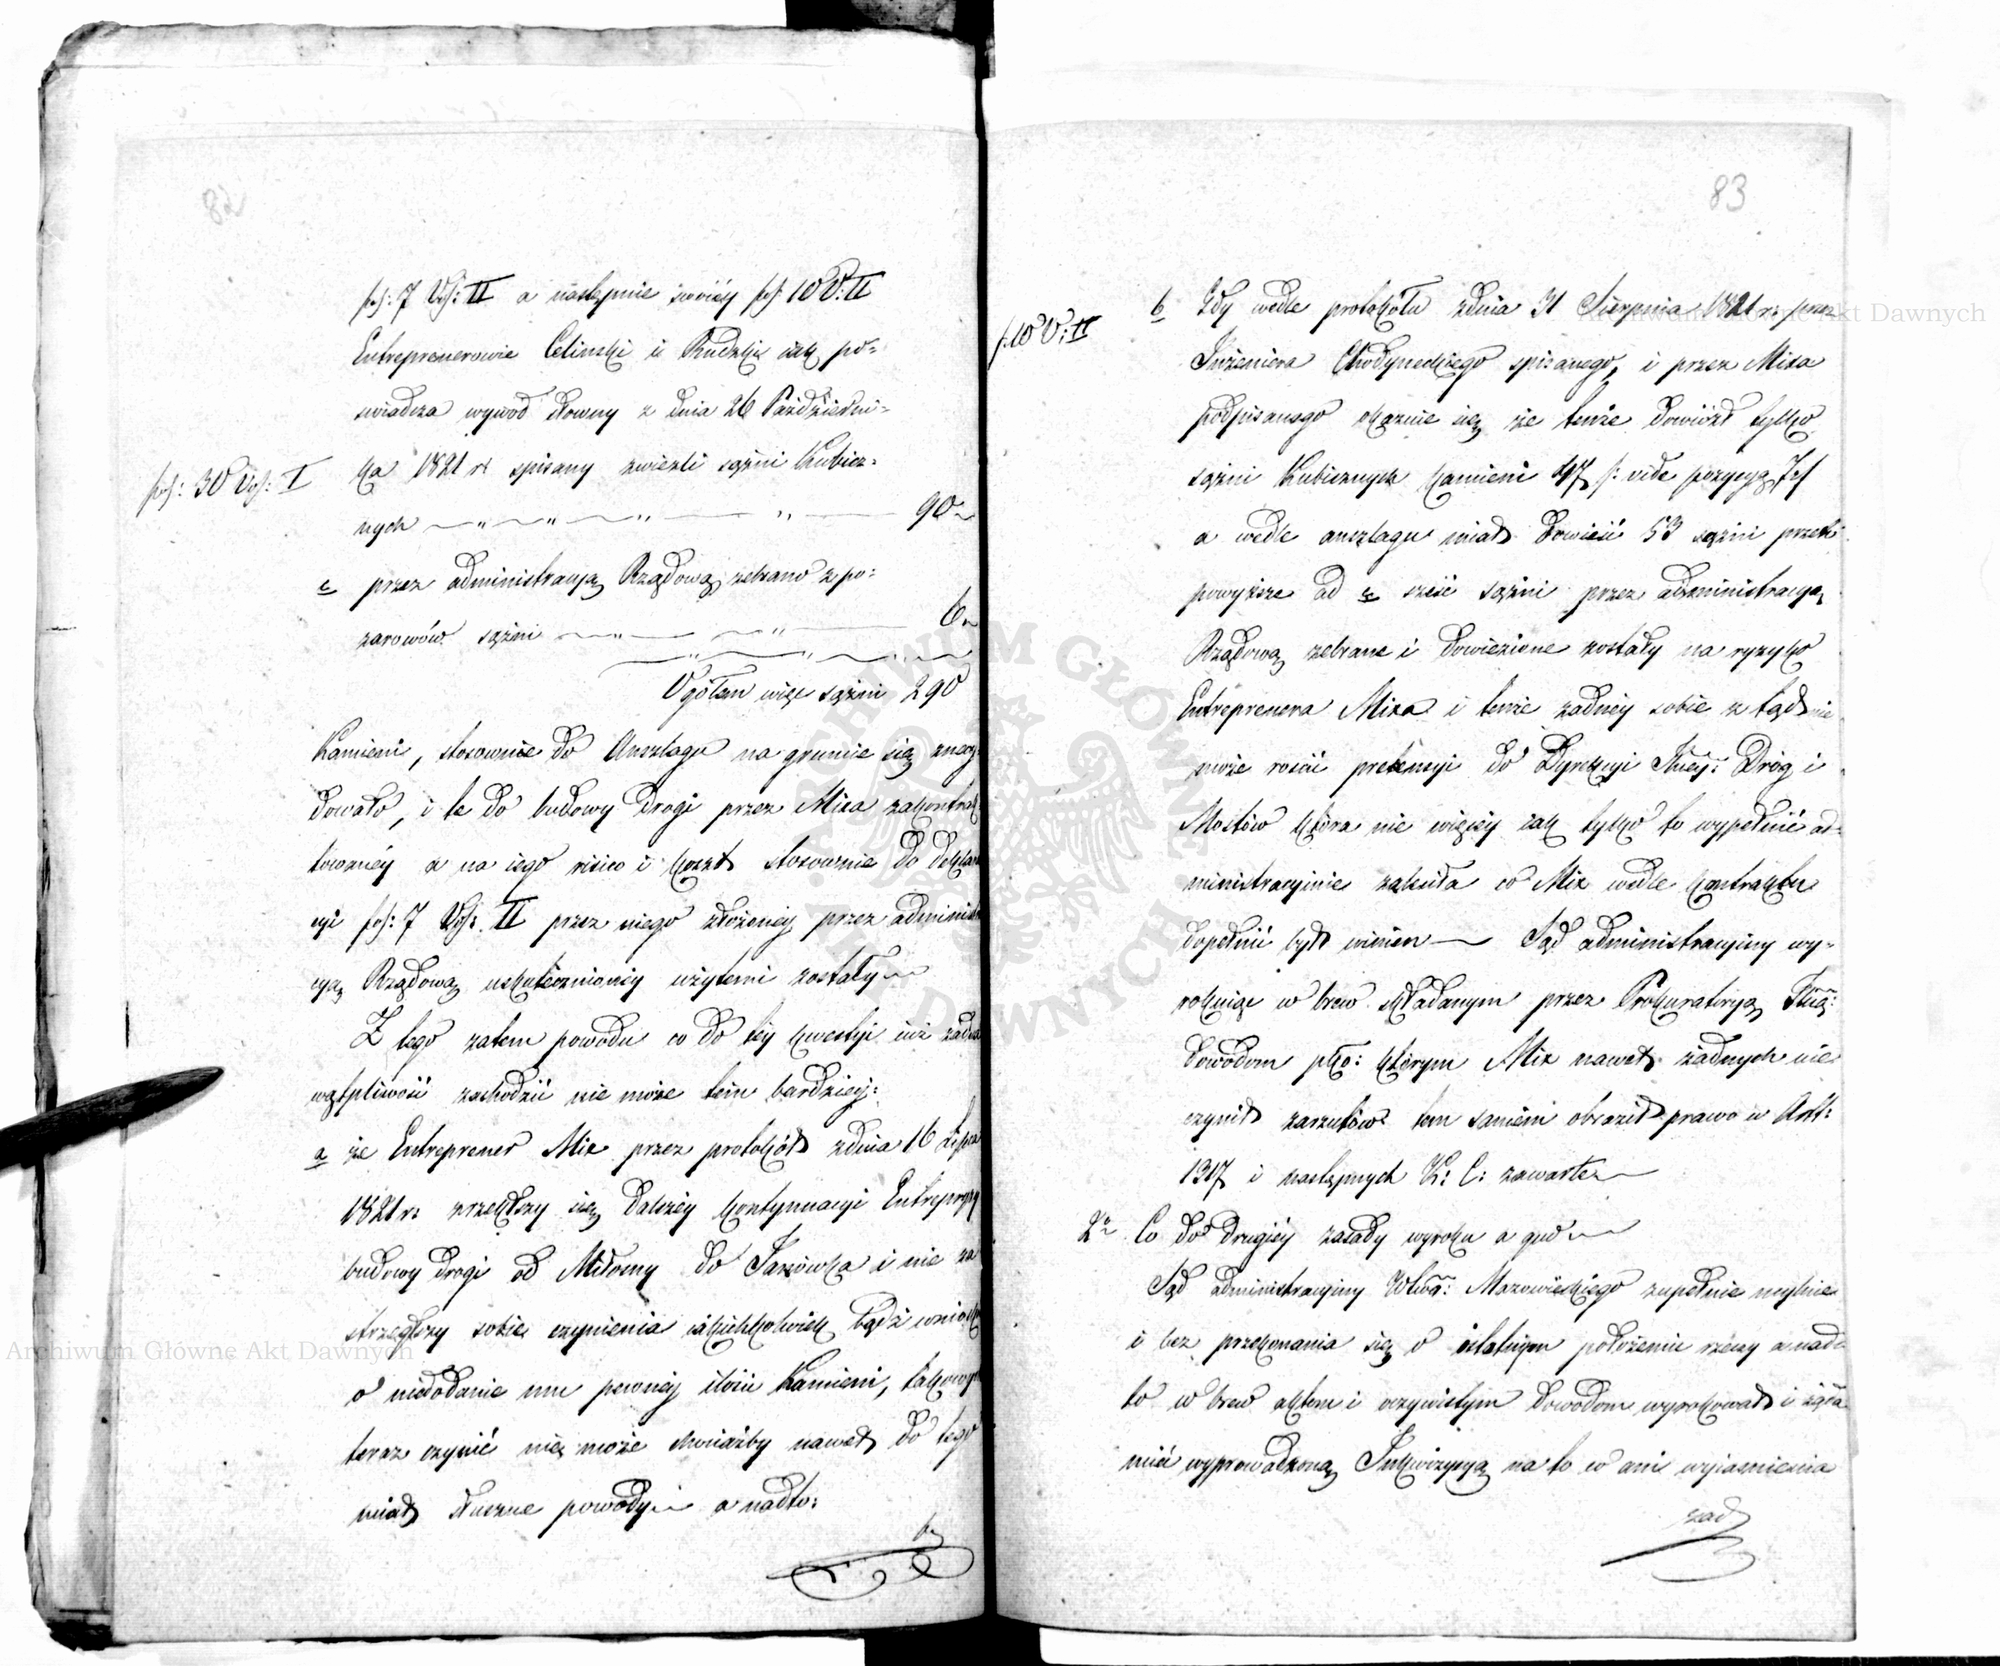 82
fol: 7 Vol: II a następnie świéży fol 10 V: II
Entreprenerowie Celinski i Rudzki iak po=
świadcza wywód słowny z dnia 26 Październi=
fol: 30 Vol: I
ka 1821 r: spisany zwieźli sążni Kubicz=
nych 90
c przez administracyą Rządową zebrano z po:
zarowów sążni 6
Ogółem więc sążni 290
Kamieni, stosownie do Anszlagu na gruncie się znay
dowało, i te do budowy drogi przez Miza zakontrak
towanéy a na iego risico i koszt stosownie do deklara
cyi fol: 7 Vol: II przez niego złożonéy przez administra
cyą Rządową uskutecznionéy użytemi zostały
Z tego zatem powodu co do téy kwestyi iuż żadna
wątpliwość zachodzić nie może tém bardziéy:
a że Entreprener Miz przez protokół z dnia 16 Lipca
1821 r: zrzekłszy się dalszéy kontynuacyi Entrepryzy
budowy drogi od Miłosny do Janówka i nie za
strzegłszy sobie czynienia iakichkolwiek bądź wniosków
o niedodanie mu pewnéy ilości Kamieni, takowych
teraz czynić nie może chociażby nawet do tego
miał słuszne powody a nadto:
b
83
f. 10 V: II
b Gdy wedle protokółu z dnia 31 Sierpnia 1821 r: przez
Inżeniera Chodyneckiego spisanego, i przez Miza
podpisanego okazuie się że tenże dowiózł tylko
sążni Kubicznych kamieni 47 /: vide pozycyą 7 :/
a wedle anszlagu miał dowieść 53 sążni przeto
powyższe ad c sześć sążni przez administracyą
Rządową zebrane i dowiezione zostały na ryzyko
Entreprenera Miza i tenże żadnéy sobie z tąd nie
może rościć pretensyi do Dyrekcyi Jlnéy: Dróg i
Mostów która nie więcéy iak tylko to wypełnić ad=
ministracyinie zaleciła co Miz wedle kontraktu
dopełnić był winien — Sąd administracyiny wy=
rokuiąc w brew składanym przez Prokuratoryą Jlną:
dowodom pko: którym Miz nawet żadnych nie
czynił zarzutów tem samém obraził prawo w Artt:
1317 i następnych K: C: zawarte
2° Co do drugiéy zasady wyroku a quo
Sąd administracyiny Wtwa: Mazowieckiego zupełnie mylnie
i bez przekonania się o istotnym położeniu rzeczy a nad
to w brew aktom i oczywistym dowodom wyrokował i
wyprowadzoną Inkwizycyą na to w ani wyiasnienia
żad
Archiwum Główne Akt Dawnych
Archiwum Główne Akt Dawnych
ARCHIWUM GŁÓWNE AKT DAWNYCH